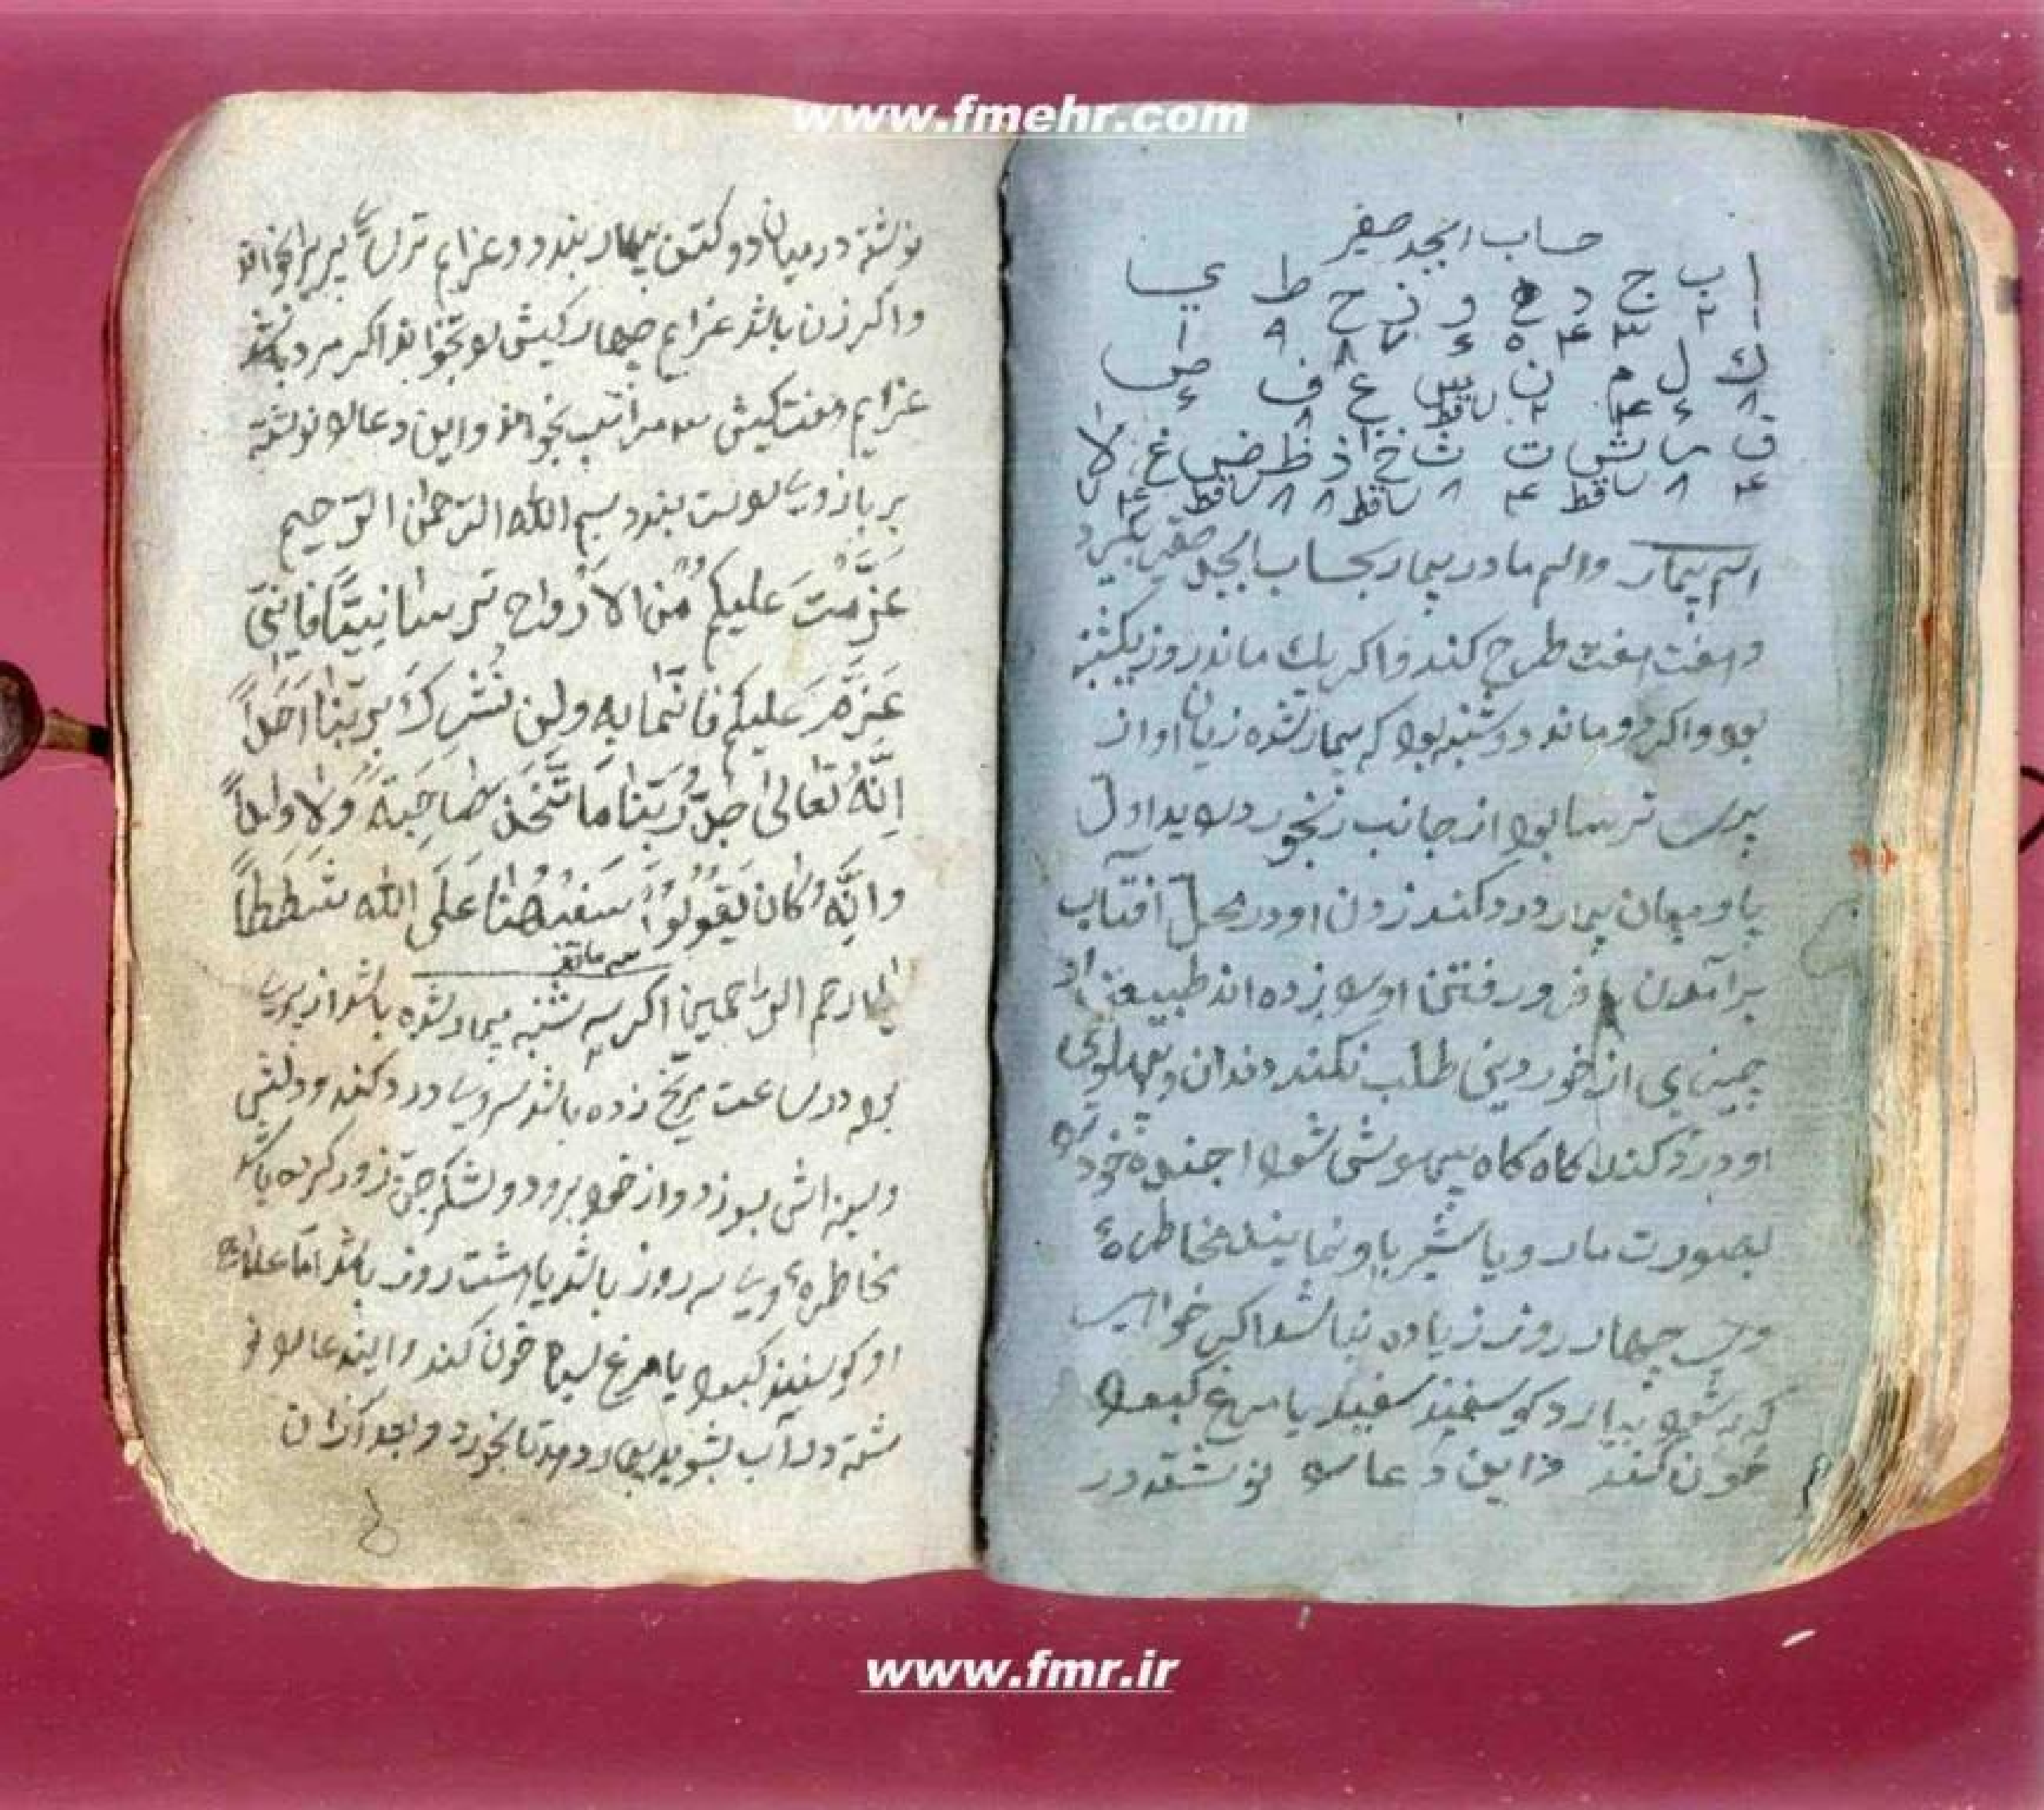 www.fmehr.com
حساب ابجد صغیر
ا ب ج د ه و ز ح ط ي
۱ ۲ ۳ ۴ ۵ ۶ ۷ ۸ ۹ ۱
ك ل م ن س ع ف ص
۸ ۶ ۴ ۲ ساقط ۸ ۶
ق ر ش ت ث خ ذ ظ ض غ لا
۴ ۸ ساقط ۴ ۸ ساقط ۸ ۸ ساقط ۴
اسم بیمار واسم مادر بیمار بحساب ابجد صغیر بگیرد
و هفت هفت طرح کند واکر یك ماند روز یکشنبه
بود واکر دو ماند دوشنبه بود که بیمار شده زیان او از
پری ترسا بود از جانب
پا و میان بیمار درد کند زدن او در محل آفتاب
برآمدن یا فرو رفتن او را زده اند طبیعت او
چیز از خوردنی طلب نکند دندان و پهلوی
او درد کند کاه کاه بیهوش شود اجنه خود را
بصورت مار و یا شیر باو نمایند مخاطره
وی چهار روز زیاده نباشد اکر خواهی
که به شود بیارد کوسفند سفید یا مرغ کبود
خون کند و این دعا را نوشته در
نوشته در میان دو کتف بیمار بندد و عزایم بر او بخواند
واکر زن باشد عزایم چهار کیش بخواند اکر مرد باشد
عزایم هفت کیش سه مراتب بخواند واین دعا را نوشته
بر بازوی راست بندد بسم الله الرحمن الرحیم
عَزَّمْتُ عَلیکم من الاَرْواح
عَلیکم فامنا به ولن نشرك بربنا احداً
انه تعالی جد ربنا ما اتخذ صاحبة ولا ولداً
وانه کان یقول سفیهنا علی الله شططاً
یا ارحم الراحمین اکر سه شنبه بیمار شده باشد از پری
بود در ساعت مریخ زده باشد سر وی درد کند و دلش
وسینه اش بسوزد و از خود برود و لشکر جن زور کرده باشد
مخاطره وی سه روز باشد یا هشت روز باشد اما علاج
او کوسفند کبود یا مرغ سیاه خون کند و ایندعا را نو
شته در آب بشوید بیمار بخورد و بعد از آن
www.fmr.ir